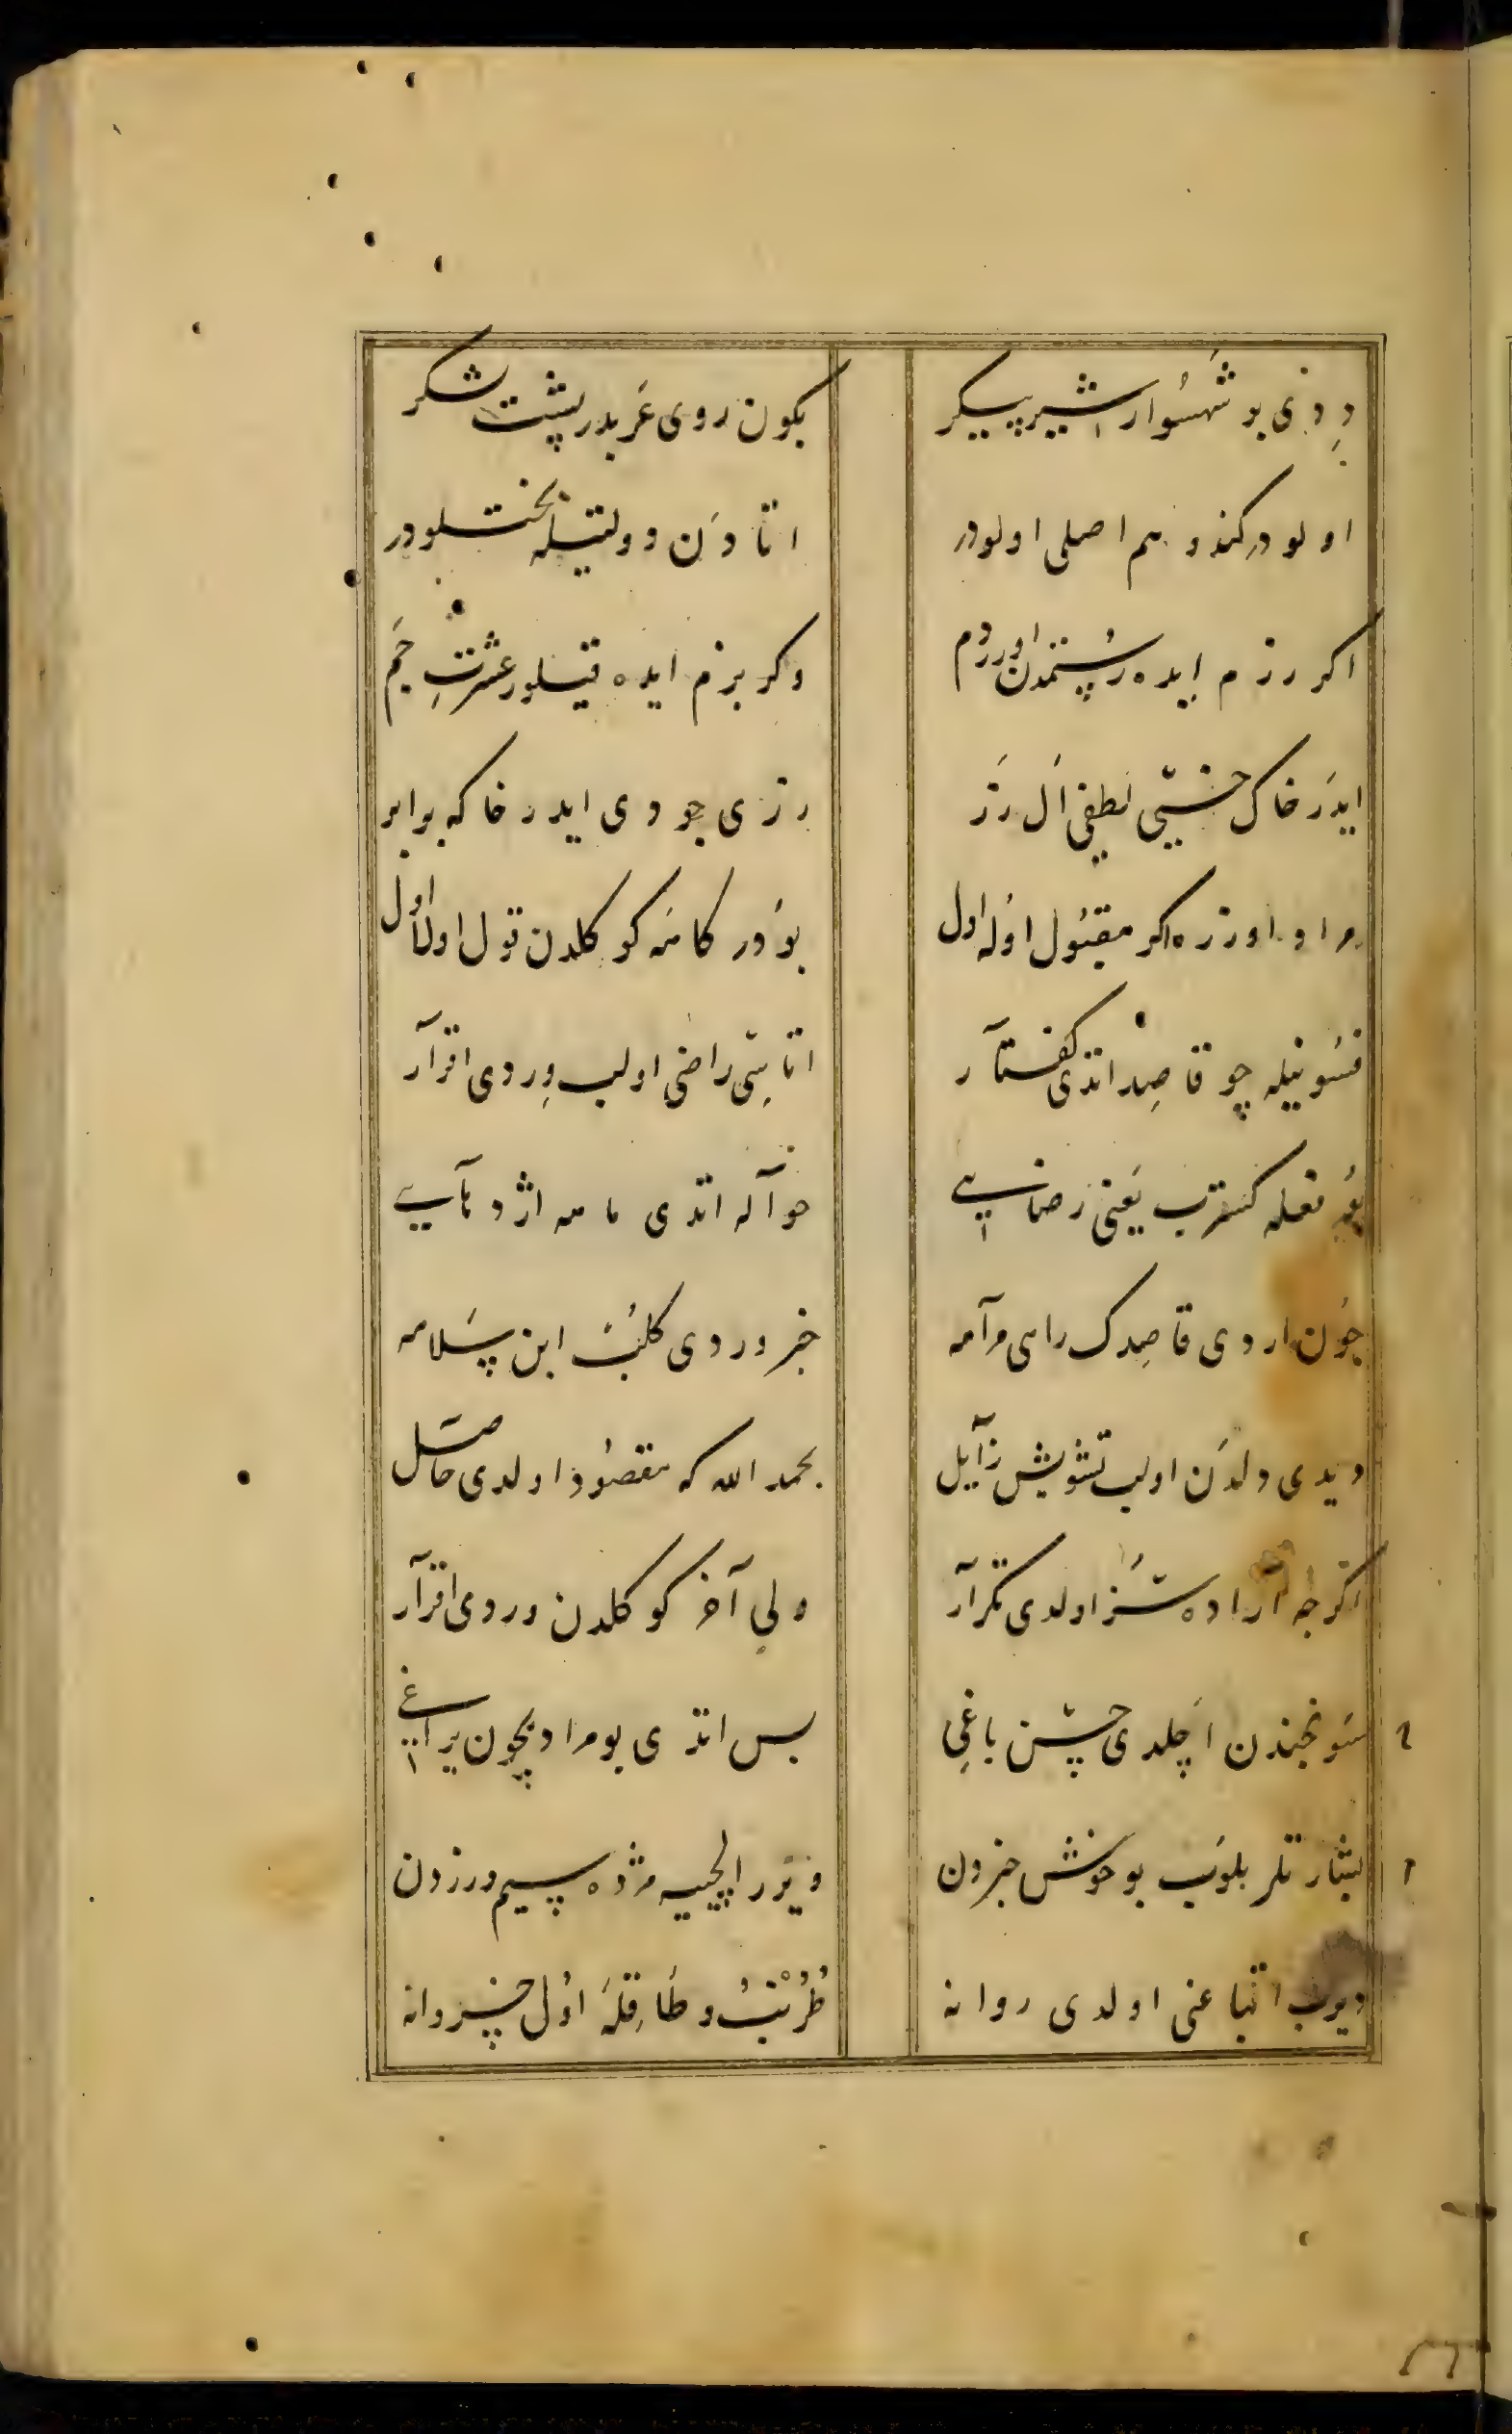 ددی بو شهسوار شیر پیکر بکون روی غربدر پشت لشکر
اولودر کندو هم اصلی اولودر اتادن دولتیله بختلودر
اکر رزم ایده رستمدن اورر دم وکر بزم ایده قیلور عشرت جم
ایدر خاک خسیی لطفی ال زر زری جودی ایدر خاکه برابر
مراد اوزره اکر مقبول اوله اول بودر کامی که کوکلدن قول اولا اول
فسونیله چو قاصد اتدی کفتار اتاسی راضی اولب وردی اقرار
یعنی رضایی حواله اتدی
چون اردی قاصدک رامی مرامه خبر وردی کلب ابن سلامه
دیدی دلدن اولب تشویش زایل بحمد الله که مقصود اولدی حاصل
اکرچه آراده سز اولدی تکرار ولی آخر کوکلدن وردی اقرار
سونجندن اچلدی جشن باغی بس اتدی بو مراد ایچون یراغی
بشارتلر بلوب بو خوش خبردن ویرر ایلچییه مژده سیم و زردن
دیرب اتباعنی اولدی روانه طرنب و طاقله اول خسروانه